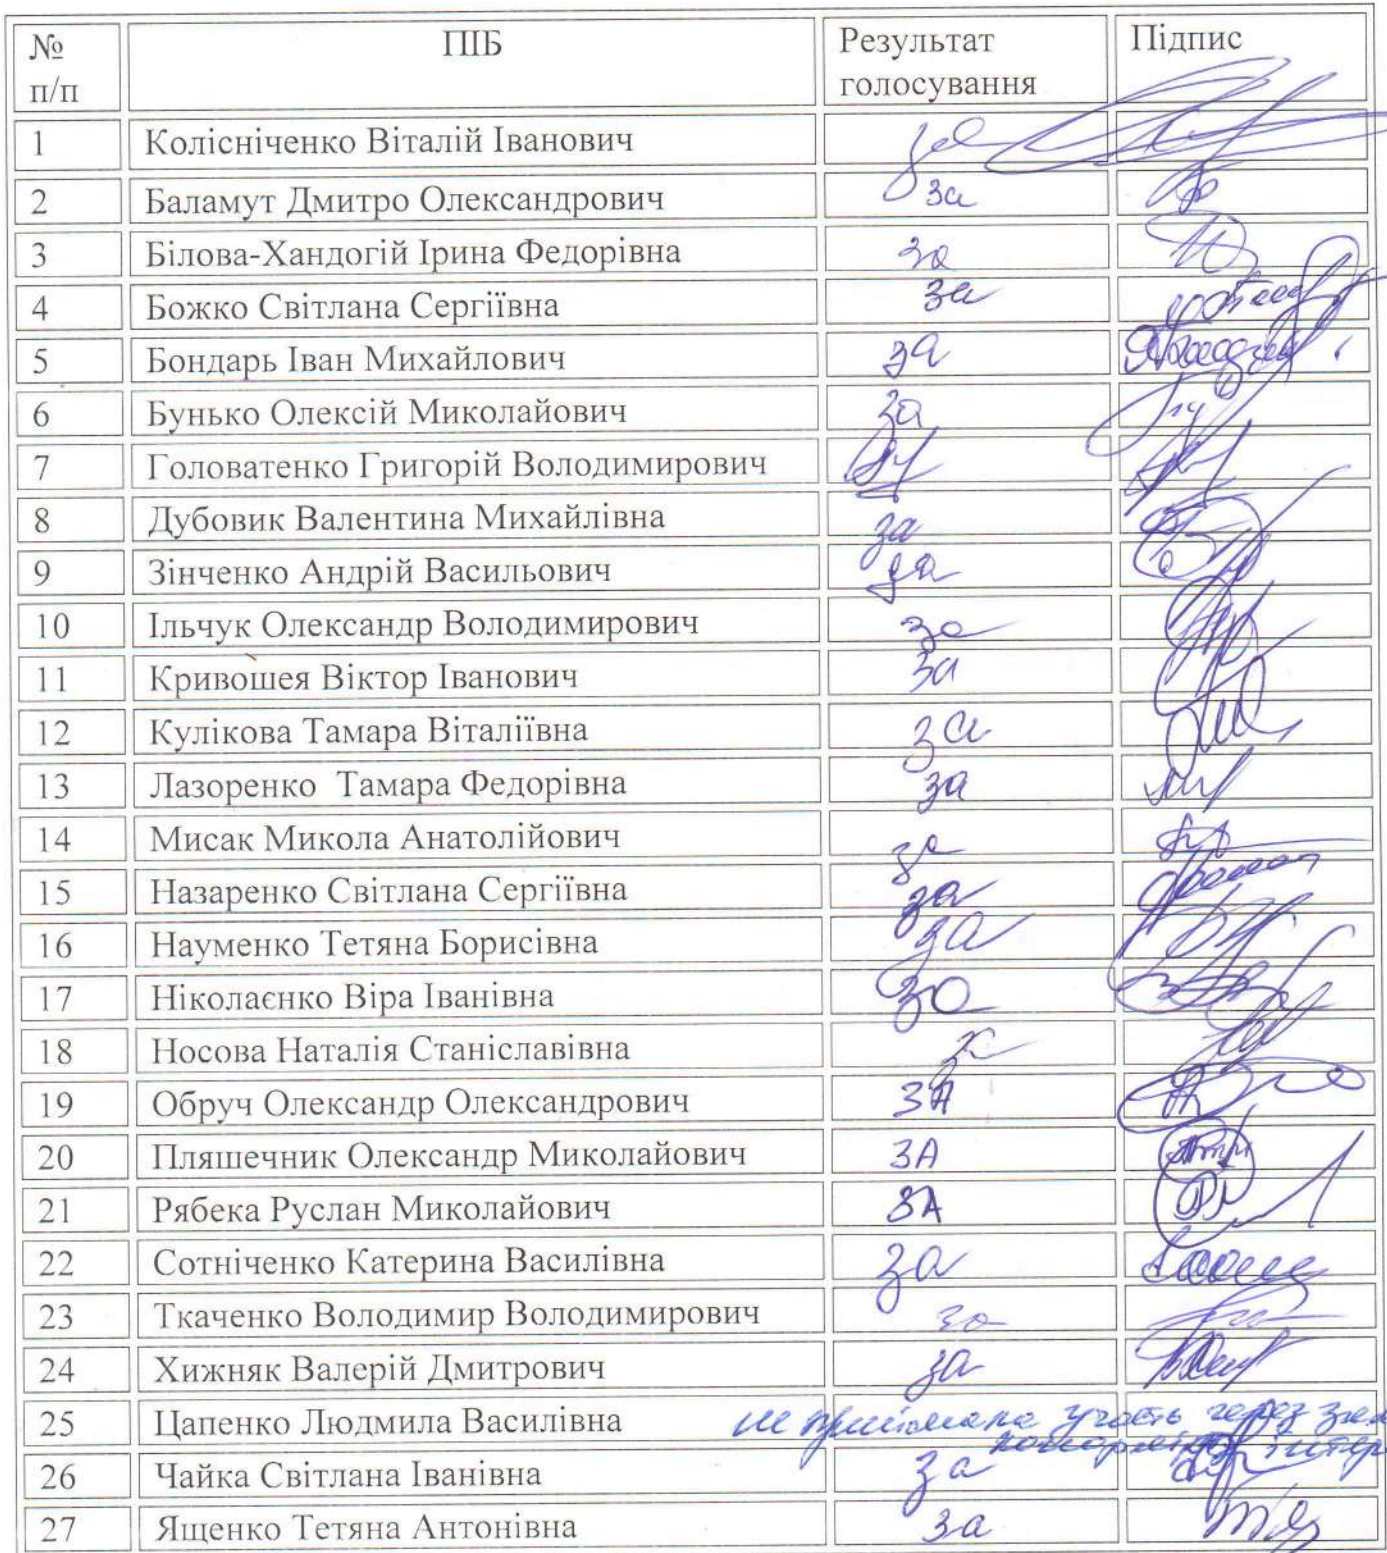 № п/п ПІБ Результат голосування Підпис
1 Колісніченко Віталій Іванович за
2 Баламут Дмитро Олександрович за
3 Білова-Хандогій Ірина Федорівна за
4 Божко Світлана Сергіївна за
5 Бондарь Іван Михайлович за
6 Бунько Олексій Миколайович за
7 Головатенко Григорій Володимирович
8 Дубовик Валентина Михайлівна за
9 Зінченко Андрій Васильович за
10 Ільчук Олександр Володимирович за
11 Кривошея Віктор Іванович за
12 Кулікова Тамара Віталіївна за
13 Лазоренко Тамара Федорівна за
14 Мисак Микола Анатолійович за
15 Назаренко Світлана Сергіївна за
16 Науменко Тетяна Борисівна за
17 Ніколаєнко Віра Іванівна за
18 Носова Наталія Станіславівна
19 Обруч Олександр Олександрович ЗА
20 Пляшечник Олександр Миколайович ЗА
21 Рябека Руслан Миколайович ЗА
22 Сотніченко Катерина Василівна за
23 Ткаченко Володимир Володимирович за
24 Хижняк Валерій Дмитрович за
25 Цапенко Людмила Василівна не приймала участь через
26 Чайка Світлана Іванівна за
27 Ященко Тетяна Антонівна за